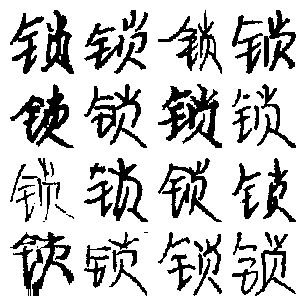 锁锁锁锁
锁锁锁锁
锁锁锁锁
锁锁锁锁